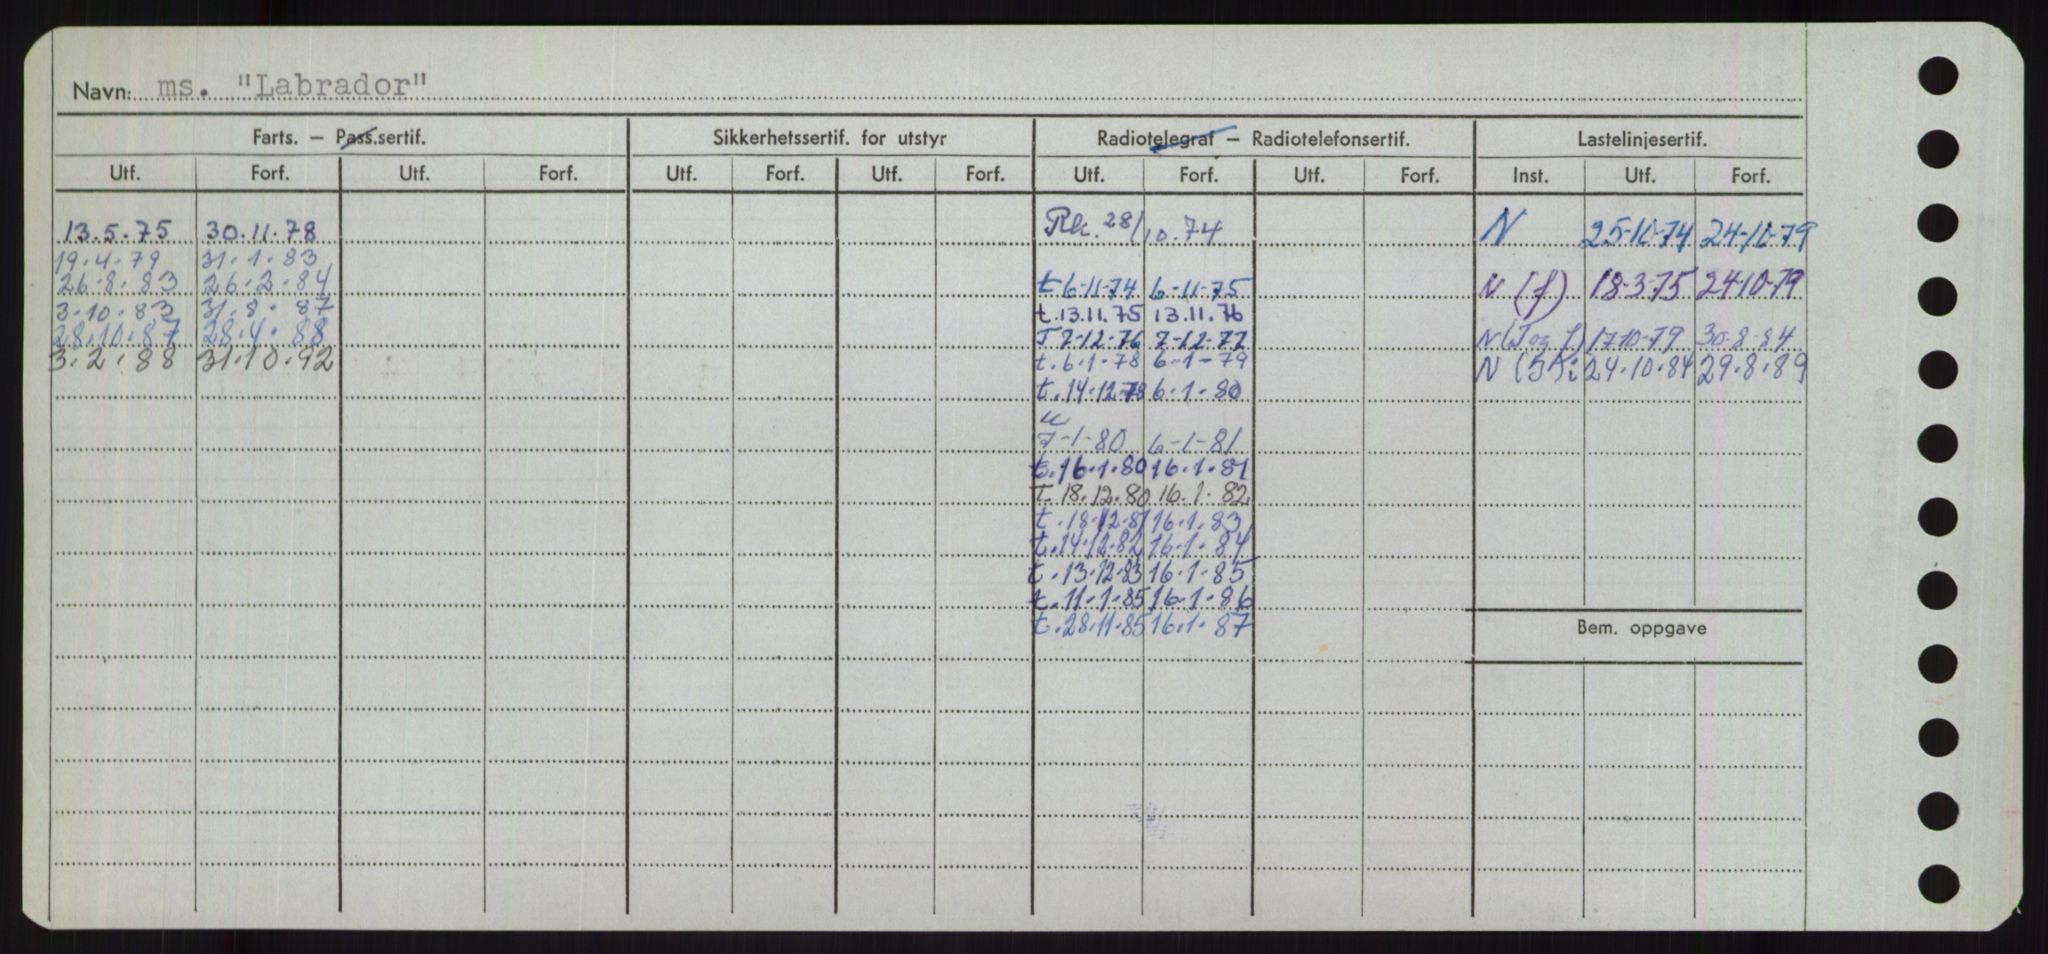 Navn: ms. "Labrador"
Farts. — Pass.sertif. Sikkerhetssertif. for utstyr Radiotelegraf — Radiotelefonsertif. Lastelinjesertif.
Utf. Forf. Utf. Forf. Utf. Forf. Utf. Forf. Utf. Forf. Utf. Forf. Inst. Utf. Forf.
13.5.75 30.11.78 Rk. 28/10.74 N 25-10-74 24-10-79
19.4.79 31.1.83
26.8.83 26.2.84 t 6-11-74 6-11-75 N (f) 18-3-75 24-10-79
3.10.83 31.8.87 t.13.11.75 13.11.76
28.10.87 28.4.88 T 7-12-76 7-12-77 N (T og f) 17-10-79 30-8-84
3.2.88 31.10.92 t.6.1.78 6-1-79 N 24.10.84 29.8.89
t.14.12.78 6.1.80
7-1-80 6-1-81
t.16.1.80 16.1.81
T.18.12.80 16.1.82
t.18.12.81 16.1.83
t.14.12.82 16.1.84
t.13.12.83 16.1.85
t.11.1.85 16.1.86
t.28.11.85 16.1.87
Bem. oppgave